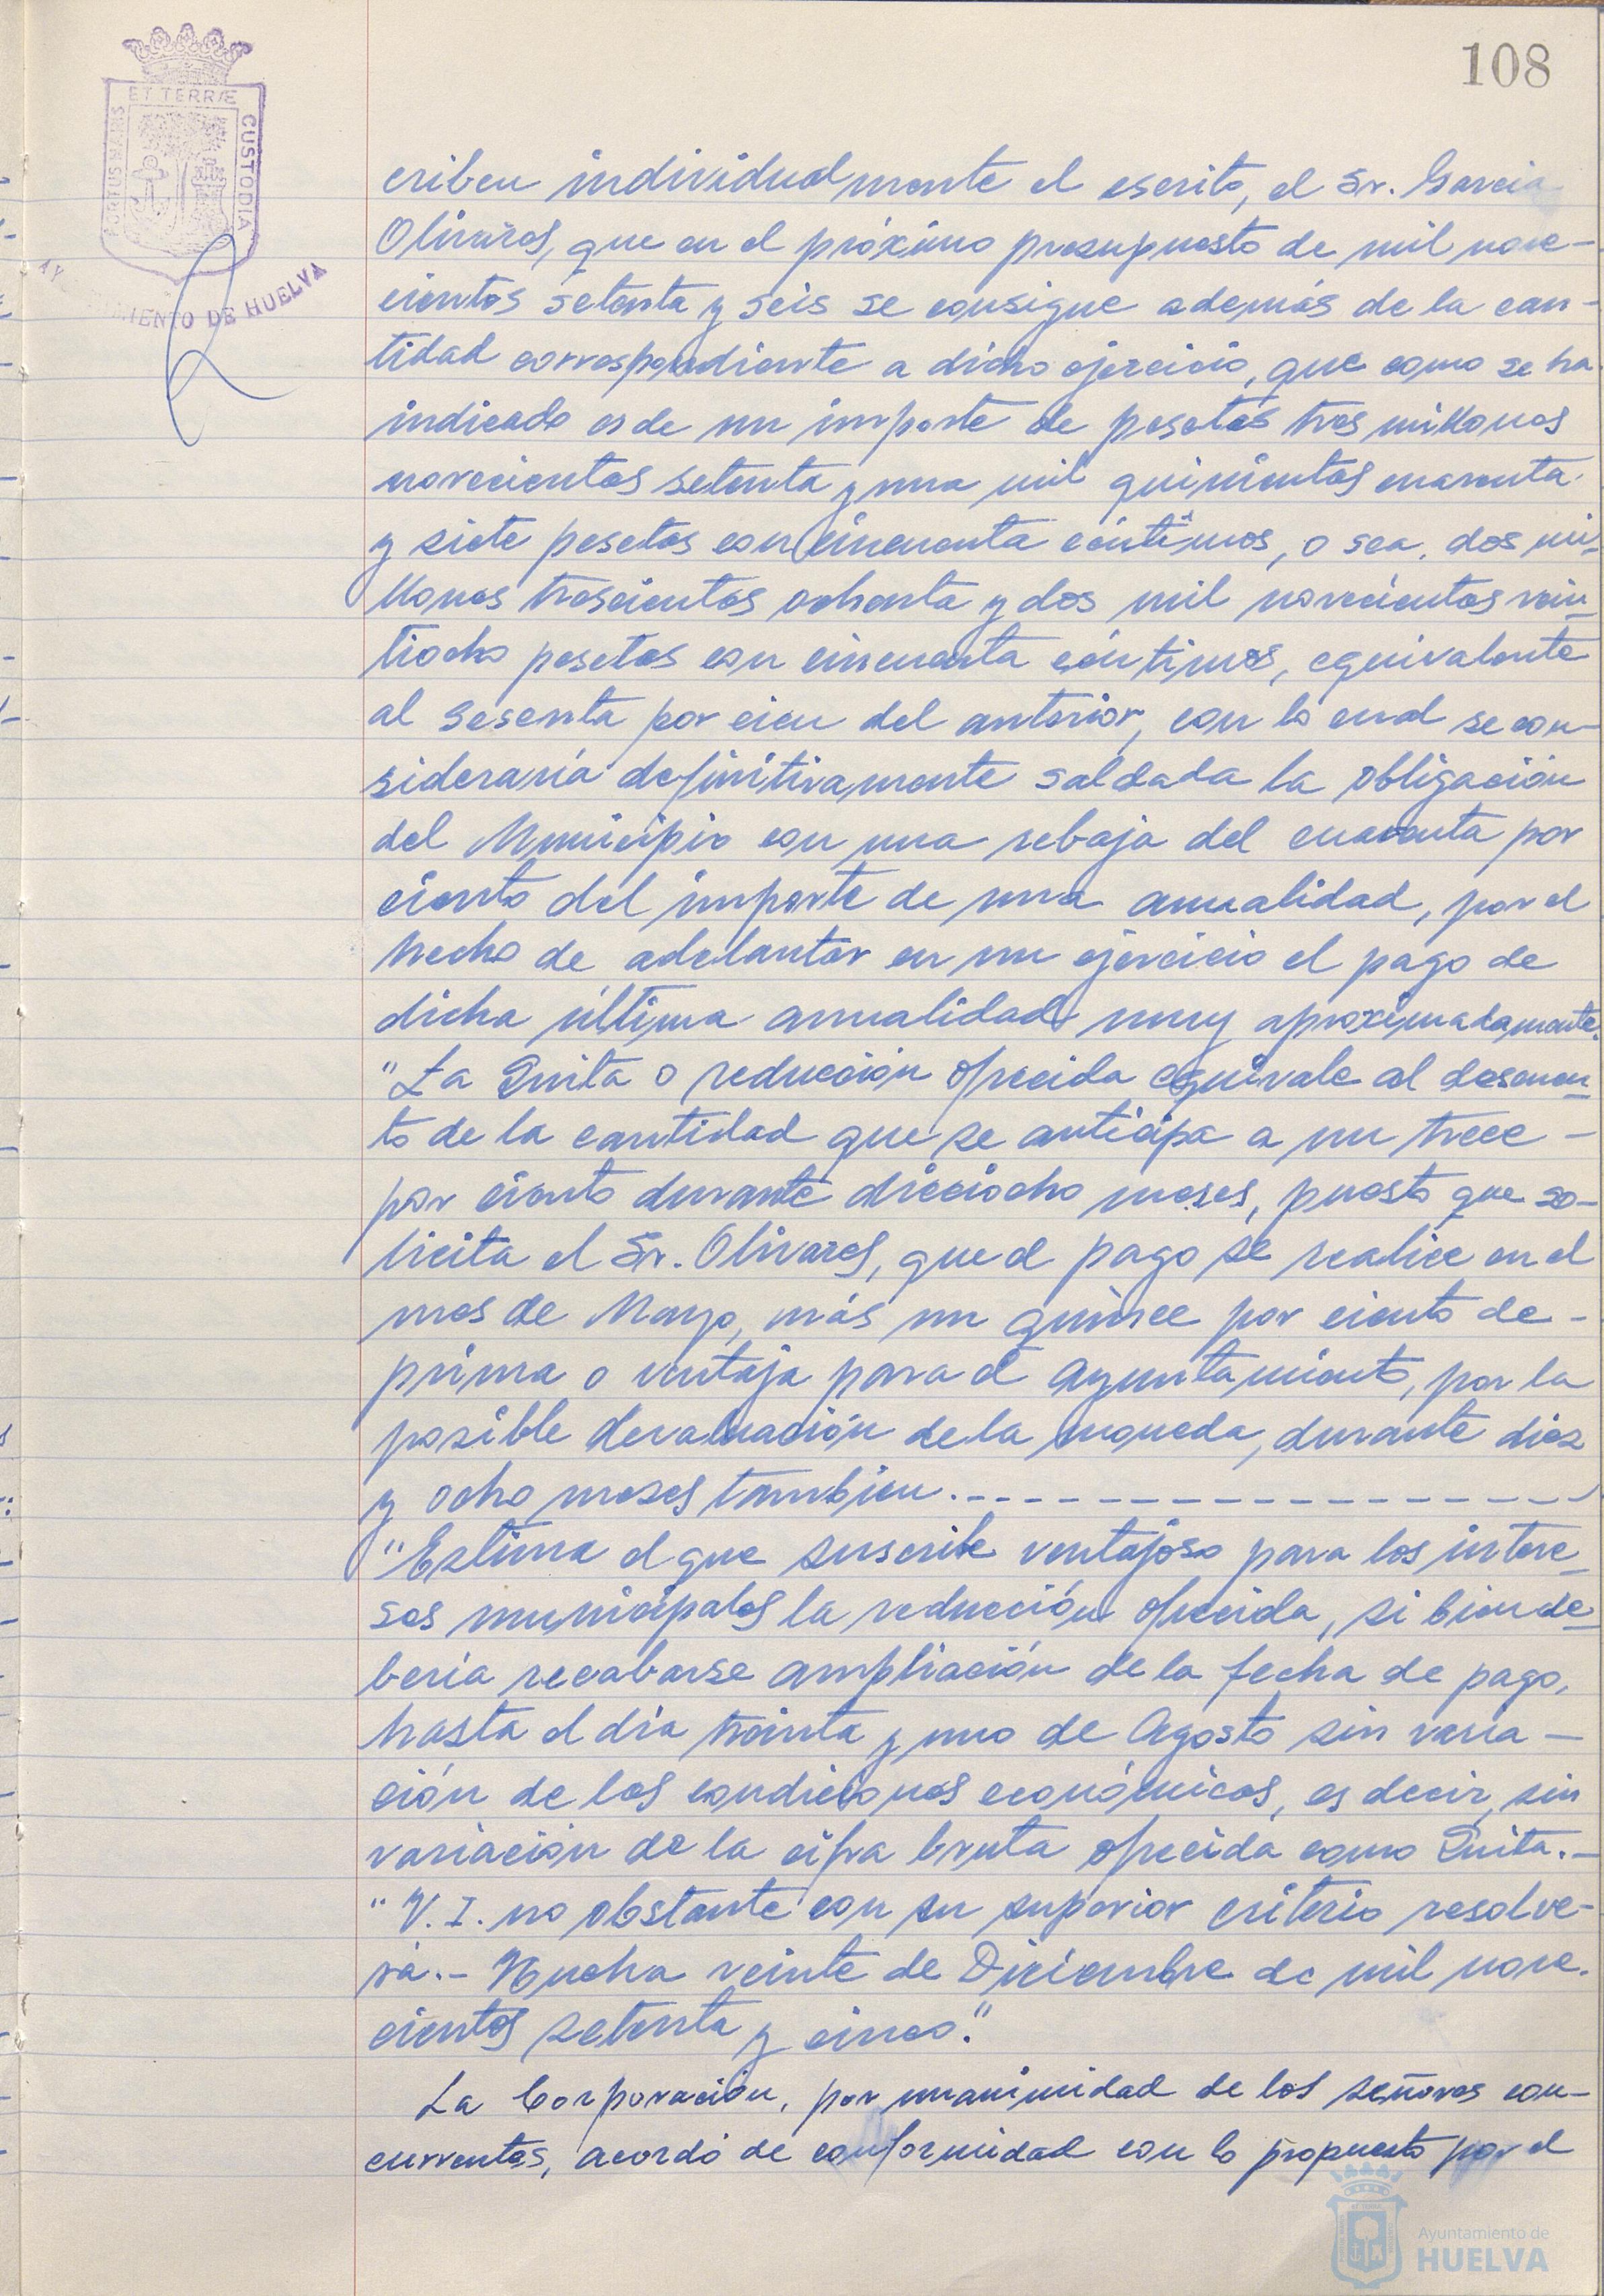 108
ET TERRÆ
PORTUS MARIS
CUSTODIA
AY
MIENTO DE HUELVA
criben individualmente el escrito, el Sr. Garcia
Olivares, que en el próximo presupuesto de mil nove-
cientos setenta y seis se consigne además de la can-
tidad correspondiente a dicho ejercicio, que como se ha
indicado es de un importe de pesetas tres millones
novecientas setenta y una mil quinientas cuarenta
y siete pesetas con cincuenta céntimos, o sea, dos mi-
llones trescientas ochenta y dos mil novecientas vein-
tiocho pesetas con cincuenta céntimos, equivalente
al sesenta por cien del anterior, con lo cual se con-
sideraría definitivamente saldada la obligación
del Municipio con una rebaja del cuarenta por
ciento del importe de una anualidad, por el
hecho de adelantar en un ejercicio el pago de
dicha última anualidad muy aproximadamente.
"La Quita o reducción ofrecida equivale al descuen-
to de la cantidad que se anticipa a un trece -
por ciento durante dieciocho meses, puesto que so-
licita el Sr. Olivares, que el pago se realice en el
mes de Mayo, más un quince por ciento de -
prima o ventaja para el Ayuntamiento, por la
posible devaluación de la moneda, durante diez
y ocho meses tambien. - - - - - - - - - - - - - - - - -
"Estima el que suscribe ventajoso para los intere-
ses municipales la reducción ofrecida, si bien de-
beria recabarse ampliación de la fecha de pago,
hasta el dia treinta y uno de Agosto sin varia -
ción de las condiciones económicas, es decir, sin
variación de la cifra bruta ofrecida como Quita. -
"V. I. no obstante con su superior criterio resolve-
rá. - Huelva veinte de Diciembre de mil nove-
cientos setenta y cinco."
La Corporación, por unanimidad de los señores con-
currentes, acordó de conformidad con lo propuesto por el
Ayuntamiento de
HUELVA